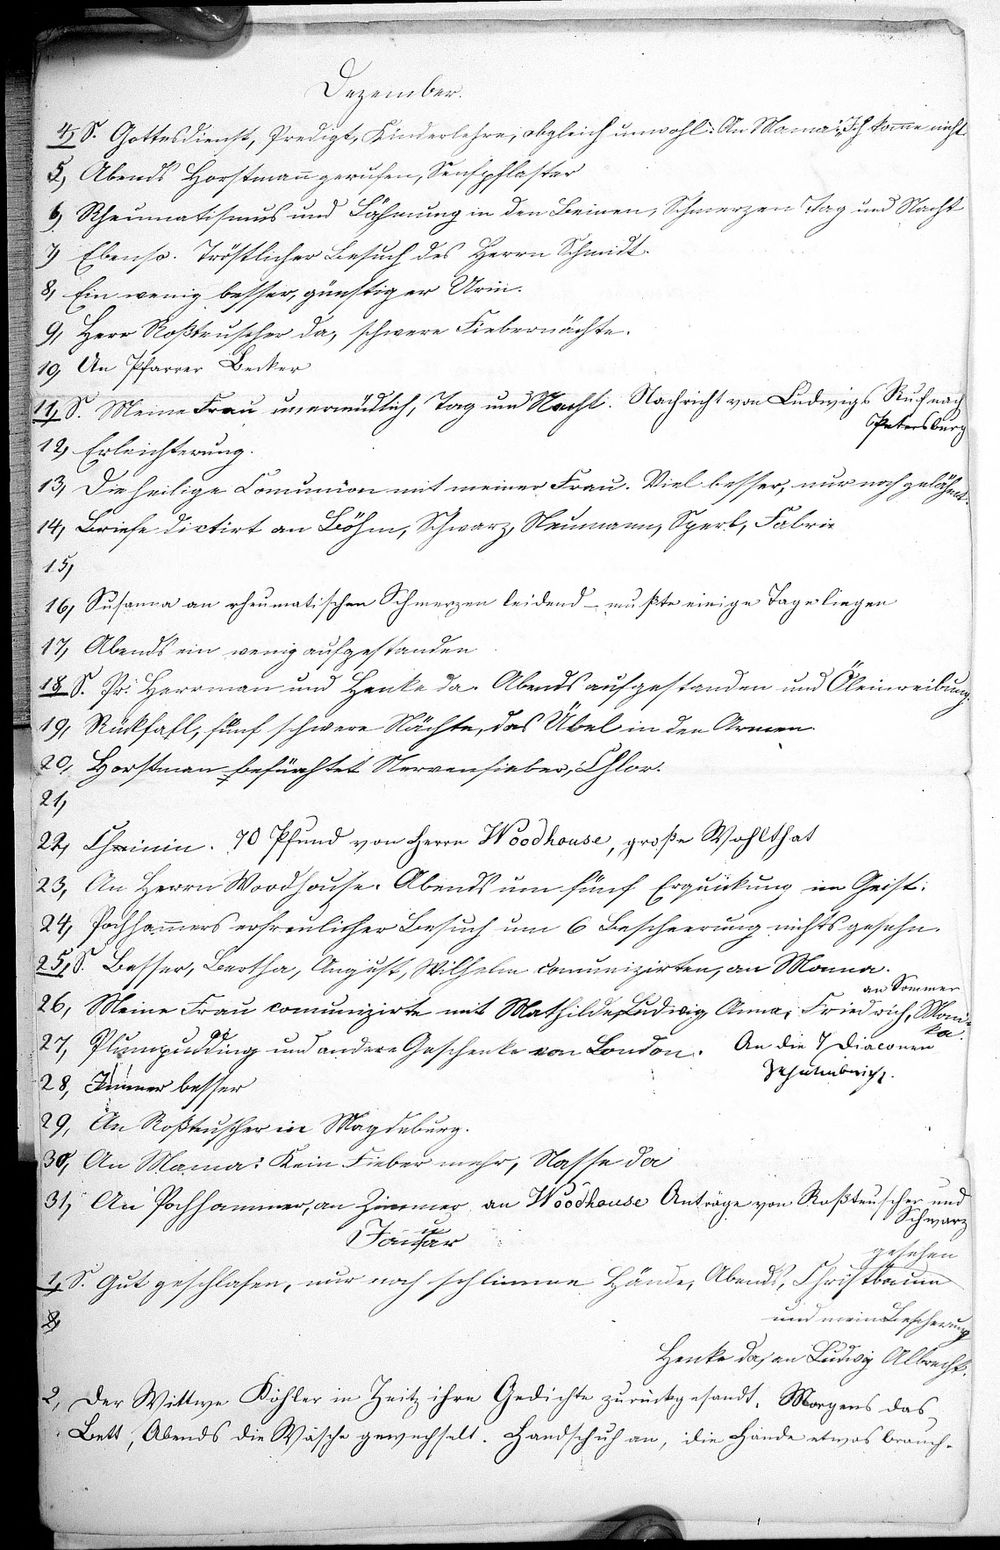 Dezember.
4, S. Gottesdienst, Predigt, Kinderlehre, obgleich unwohl. An Mama: Ich komme nicht
5, Abends Horstmann gerufen, Senfpflaster
6, Rheumatismus und Lähmung in den Beinen, Schmerzen Tag und Nacht
7, Ebenso. Tröstlicher Besuch des Herrn Schmidt.
8, Ein wenig besser, günstiger Urin.
9, Herr Roßteuscher da, schwere Fiebernächte.
10, An Pfarrer Becker
11, S. Meine Frau unermüdlich, Tag und Nacht. Nachricht von Ludwigs Ruf nach
Petersburg
12, Erleichterung.
13, Die heilige Comunion mit meiner Frau. Viel besser, nur noch gelähmt.
14, Briefe dictirt an Böhm, Schwarz, Neumann, Sperl,
15,
16, Susanna an rheumatischen Schmerzen leidend – mußte einige Tage liegen
17, Abends ein wenig aufgestanden
18 S. Pr. Herrman und Henke da. Abends aufgestanden und Öleinreibung.
19, Rückfall, fünf schwere Nächte, das Übel in den Armen.
20, Horstman befürchtet Nervenfieber, Chlor.
21,
22, Chinin. 70 Pfund von Herrn Woodhouse, große Wohlthat
23, An Herrn Woodhouse. Abends um fünf Erquickung im Geist.
24, Pochhamers erfreulicher Besuch um 6 Bescheerung nichts gesehn.
25, S. Besser, Bertha, August, Wilhelm comunizirten, an Mama.
an Sommer
26, Meine Frau comunizirte mit Mathilde, Ludwig Anna, Friedrich,
27, Plumpudding und andere Geschenke von London. An die 7 Diaconen
28, Immer besser
29, An Roßteuscher in Magdeburg.
30, An Mama: Kein Fieber mehr, Nasse da
31, An Pochhammer, an Zimmer an Woodhouse Anträge von Roßteuscher und
Schwarz
Januar
gesehen
1, S. Gut geschlafen, nur noch schlimme Hände, Abends, Christbaum
und meine Bescherung
Henke da, an Ludwig Albrecht.
2, Der Wittwe Köhler in Zeitz ihre Gedichte zurückgesandt. Morgens das
Bett, Abends die Wäsche gewechselt. Handschuh an, die Hände etwas brauch-